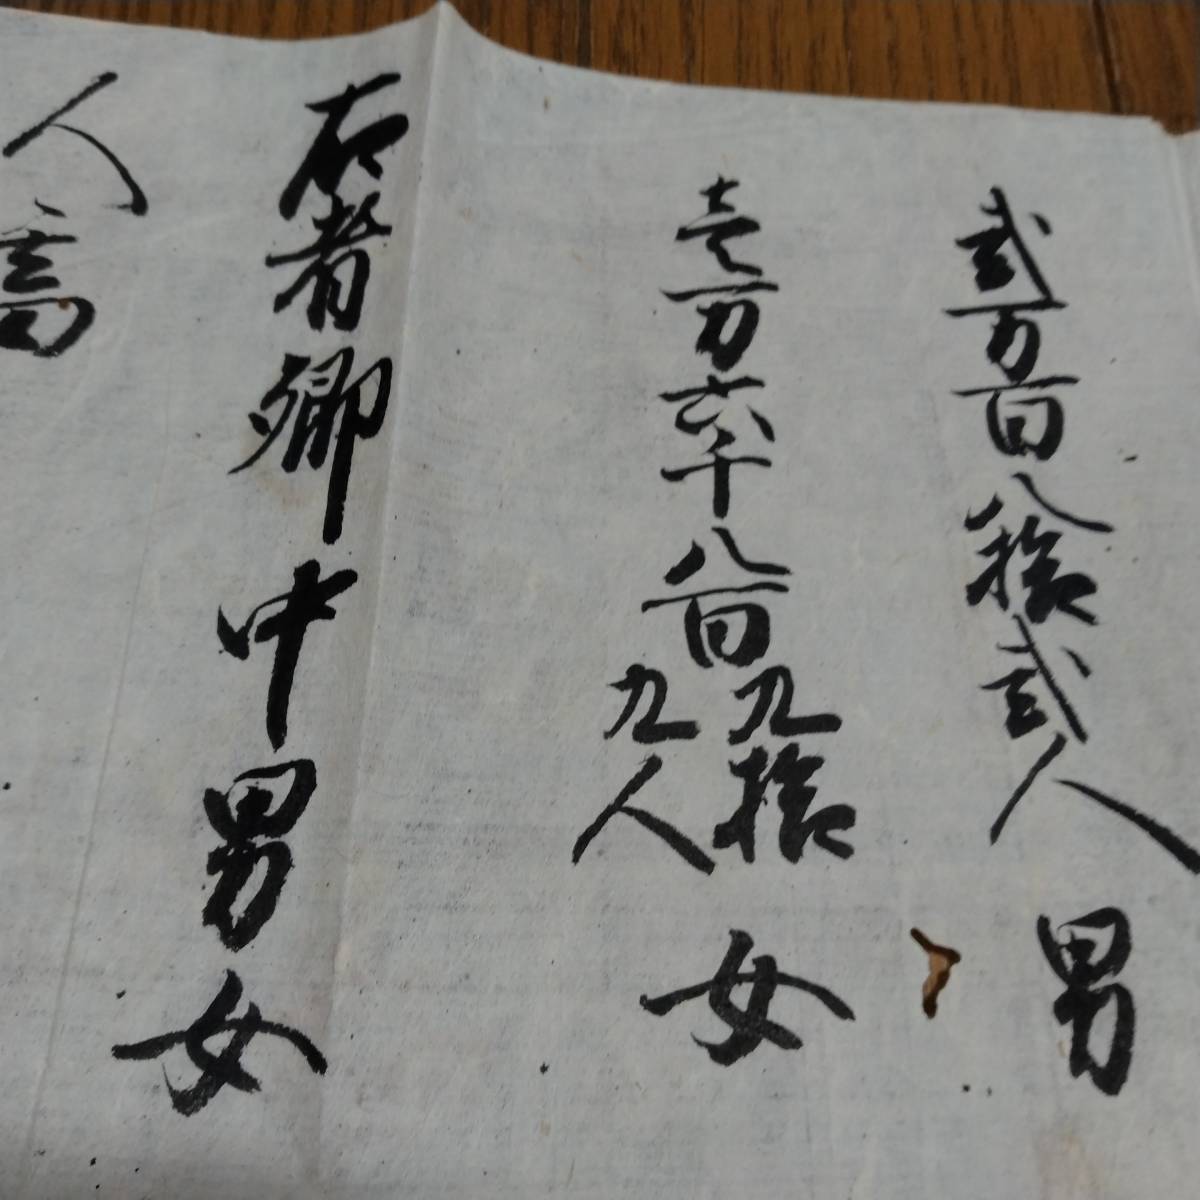 弐万百八拾弐人 男
壱万六千八百九拾九人 女
右者郷中男女
人高